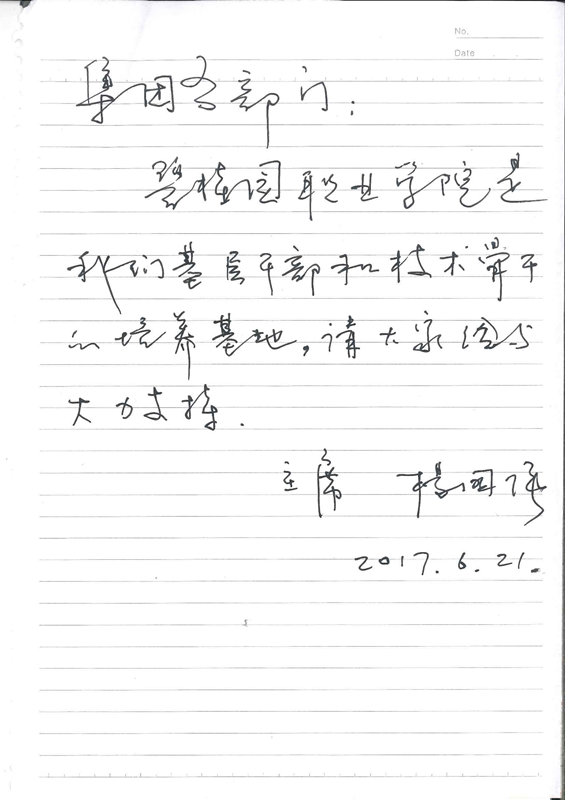 No.
Date
集团各部门:
碧桂园职业学院是
我们基层干部和技术骨干
的培养基地,请大家给与
大力支持.
主席 杨国强
2017.6.21.